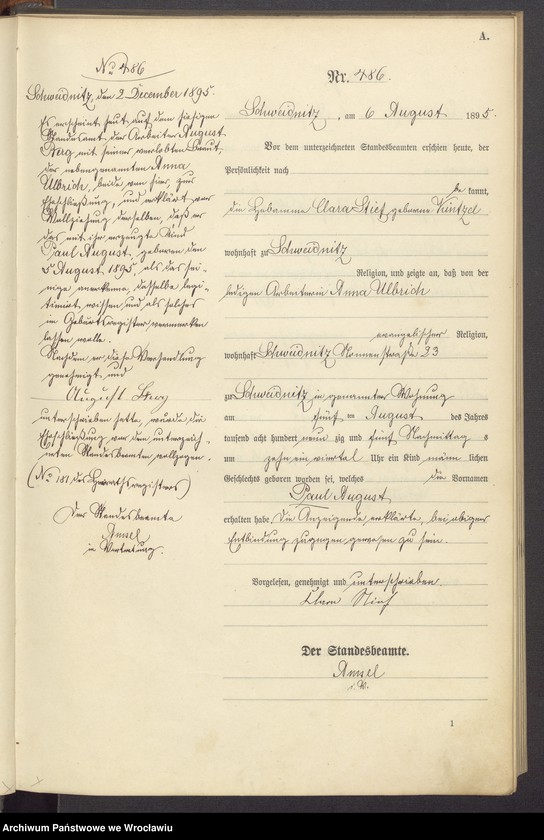 A.
No 486
Schweidnitz, den 2 December 1895.
Es erscheint heut auf dem hiesigen
Standesamt der Arbeiter August
mit seiner verlobten Braut,
der nebengenannten Anna
Ulbrich, beide von hier, zur
Eheschließung, und erklärt vor
Vollziehung derselben, daß er
das mit ihr erzeugte Kind
Paul August, geboren den
5 August 1895, als das sei-
nige anerkenne, dasselbe legi-
timirt wissen und als solches
im Geburtsregister vermerken
lassen wolle.
Nachdem er diese Verhandlung
genehmigt und
August
unterschrieben hatte, wurde die
Eheschließung von dem unterzeich-
neten Standesbeamten vollzogen.
(No 181 des Heirathsregisters)
Der Standesbeamte
Amsel
in Vertretung.
Nr. 486.
Schweidnitz, am 6 August 1895.
Vor dem unterzeichneten Standesbeamten erschien heute, der
Persönlichkeit nach
be kannt,
die Hebamme Clara Stief geborene Küntzel
wohnhaft zu Schweidnitz
Religion, und zeigte an, daß von der
ledigen Arbeiterin Anna Ulbrich
evangelischer Religion,
wohnhaft Schweidnitz Nonnenstraße 23
zu Schweidnitz in genannter Wohnung
am fünf ten August des Jahres
tausend acht hundert neun zig und fünf Nachmittag s
um zehn ein viertel Uhr ein Kind männ lichen
Geschlechts geboren worden sei, welches die Vornamen
Paul August
erhalten habe. Die Anzeigende erklärte, bei obiger
Entbindung zugegen gewesen zu sein.
Vorgelesen, genehmigt und unterschrieben.
Clara Stief
Der Standesbeamte.
Amsel
i. V.
1
Archiwum Państwowe we Wrocławiu